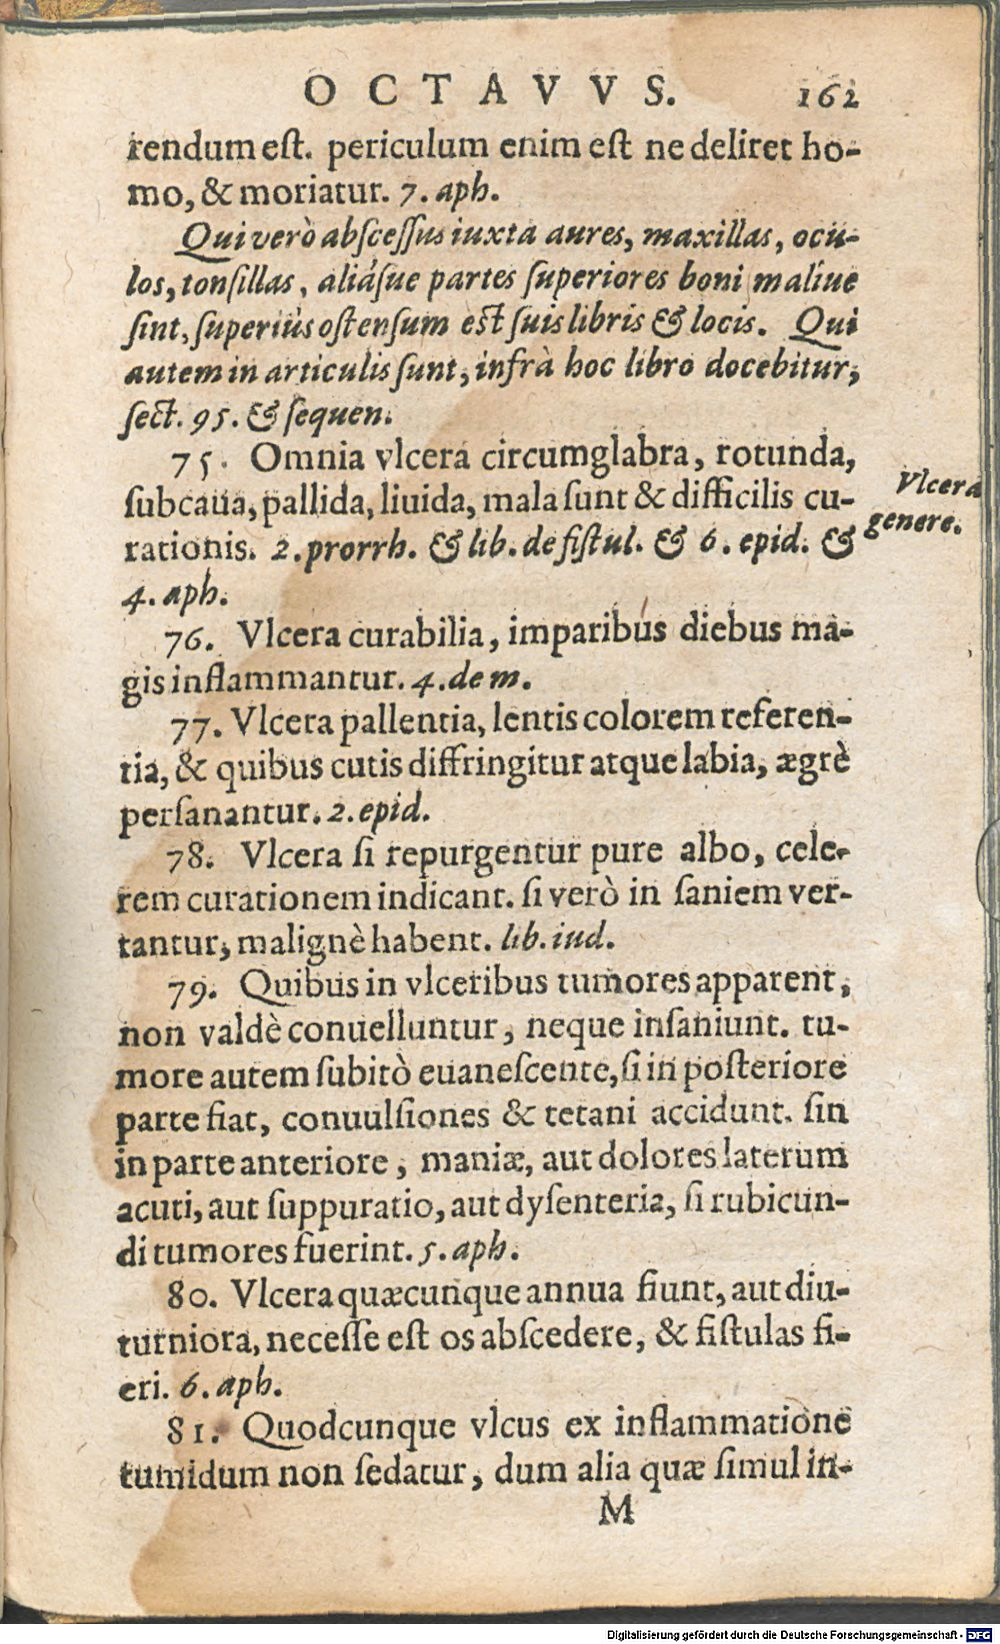 OCTAVVS. 162
rendum est. periculum enim est ne deliret ho-
mo, & moriatur. 7. aph.
Qui verò abscessus iuxta aures, maxillas, ocu-
los, tonsillas, aliásue partes superiores boni maliue
sint, superiùs ostensum est suis libris & locis. Qui
autem in articulis sunt, infrà hoc libro docebitur,
sect. 95. & sequen.
75. Omnia vlcera circumglabra, rotunda,
subcaua, pallida, liuida, mala sunt & difficilis cu-
rationis. 2. prorrh. & lib. de fistul. & 6. epid. &
4. aph.
Vlcera
genere.
76. Vlcera curabilia, imparibus diebus ma-
gis inflammantur. 4. de m.
77. Vlcera pallentia, lentis colorem referen-
tia, & quibus cutis diffringitur atque labia, ægrè
persanantur. 2. epid.
78. Vlcera si repurgentur pure albo, cele-
rem curationem indicant. si verò in saniem ver-
tantur, malignè habent. lib. iud.
79. Quibus in vlceribus tumores apparent,
non valdè conuelluntur, neque insaniunt. tu-
more autem subitò euanescente, si in posteriore
parte fiat, conuulsiones & tetani accidunt. sin
in parte anteriore, maniæ, aut dolores laterum
acuti, aut suppuratio, aut dysenteria, si rubicun-
di tumores fuerint. 5. aph.
80. Vlcera quæcunque annua fiunt, aut diu-
turniora, necesse est os abscedere, & fistulas fi-
eri. 6. aph.
81. Quodcunque vlcus ex inflammatione
tumidum non sedatur, dum alia quæ simul in-
M
Digitalisierung gefördert durch die Deutsche Forschungsgemeinschaft - DFG